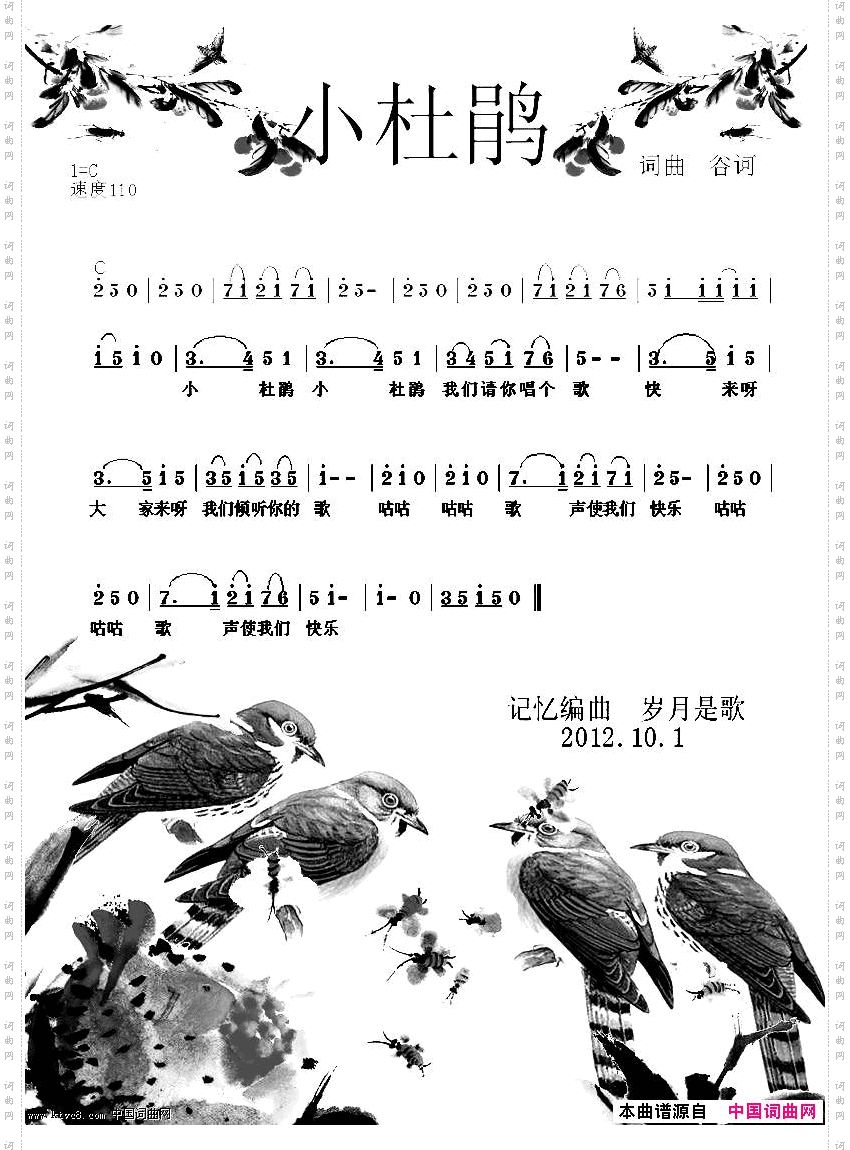 小杜鹃
1=C
速度110
词曲 谷诃
C
2 5 0 | 2 5 0 | 7 1 2 1 7 1 | 2 5 - | 2 5 0 | 2 5 0 | 7 1 2 1 7 6 | 5 1 1 1 1 1 |
1 5 1 0 | 3. 4 5 1 | 3. 4 5 1 | 3 4 5 1 7 6 | 5 - - | 3. 5 1 5 |
小 杜鹃 小 杜鹃 我们请你唱个 歌 快 来呀
3. 5 1 5 | 3 5 1 5 3 5 | 1 - - | 2 1 0 | 2 1 0 | 7. 1 2 1 7 1 | 2 5 - | 2 5 0 |
大 家来呀 我们倾听你的 歌 咕咕 咕咕 歌 声使我们 快乐 咕咕
2 5 0 | 7. 1 2 1 7 6 | 5 1 - | 1 - 0 | 3 5 1 5 0 ‖
咕咕 歌 声使我们 快乐
记忆编曲 岁月是歌
2012.10.1
www.ktvc8.com 中国词曲网
本曲谱源自 中国词曲网